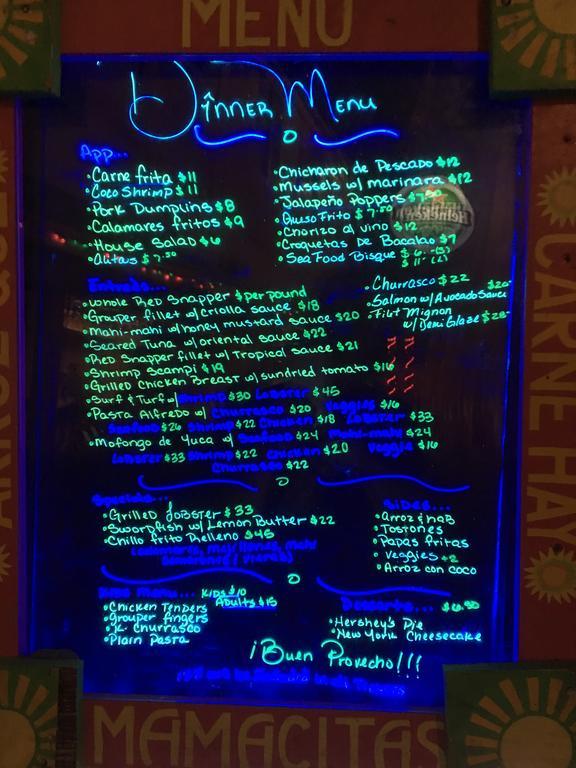 MENU
Dinner Menu
App...
•Carne frita $11
•Coco Shrimp $11
•Pork Dumplins $8
•Calamares fritos $9
•House Salad $6
•Alitas $7.50
•Chicharon de Pescado $12
•Mussels w/ marinara $12
•Jalapeño Poppers $7.50
•Queso Frito $7.50
•Chorizo al vino $12
•Croquetas De Bacalao $9
•Sea Food Bisque $6
Heineken
Entrees...
•Whole Red Snapper $per pound
•Grouper fillet w/ criolla sauce $18
•Mahi-mahi w/ honey mustard sauce $20
•Seared Tuna w/ oriental sauce $22
•Red Snapper fillet w/ Tropical sauce $21
•Shrimp Scampi $19
•Grilled Chicken Breast w/ sundried tomato $16
•Surf & Turf w/ Shrimp $30 Lobster $45
•Pasta Alfredo w/ Churrasco $20 Veggies $16
Seafood $26 Shrimp $22 Chicken $18 Lobster $33
•Mofongo de Yuca w/ Seafood $24 Mahi-mahi $24
Lobster $33 Shrimp $22 Chicken $20 Veggie $16
Churrasco $22
•Churrasco $22
•Salmon w/ Avocado Sauce
•Filet Mignon
w/ Demi Glaze
Specials...
•Grilled Lobster $33
•Swordfish w/ Lemon Butter $22
•Chillo frito Relleno $45
Sides...
•Arroz & Hab
•Tostones
•Papas fritas
•Veggies +2
•Arroz con coco
Kids Menu... Kids $10
Adults $15
•Chicken Tenders
•Grouper fingers
•K. Churrasco
•Plain Pasta
Desserts... $6.50
•Hershey's Pie
•New York Cheesecake
¡Buen Provecho!!!
MAMACITAS
CARNE HAY